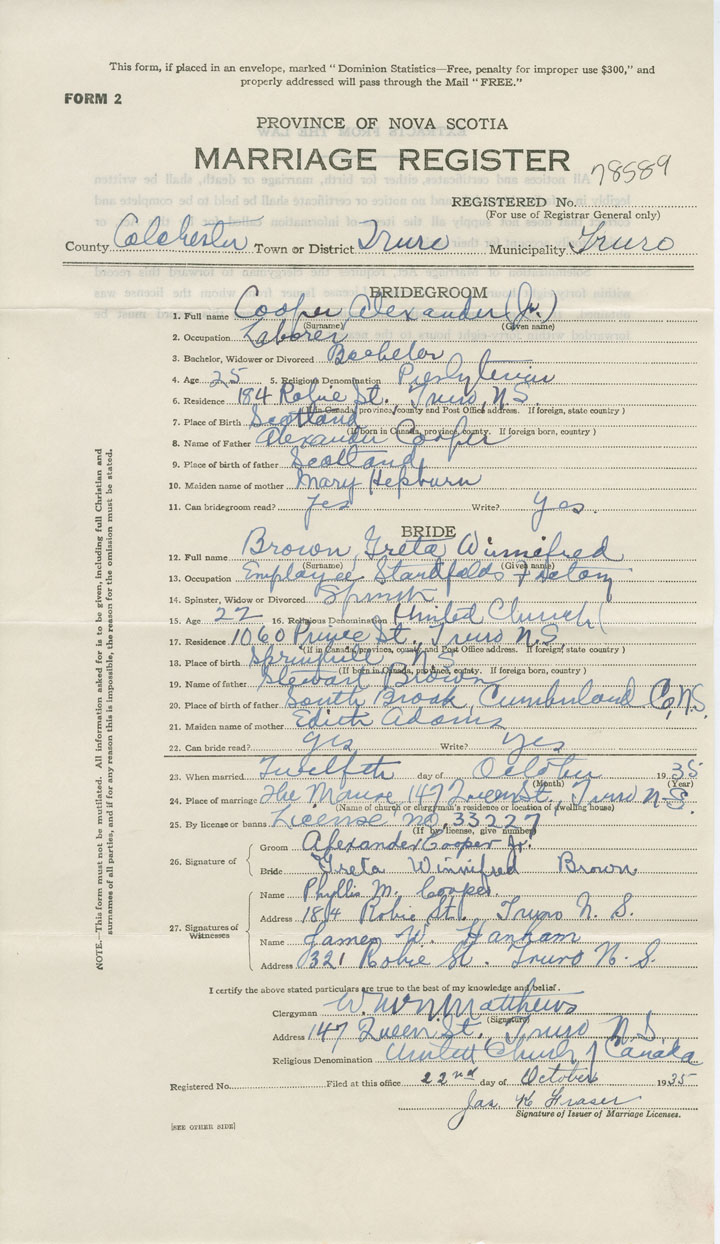 This form, if placed in an envelope, marked "Dominion Statistics—Free, penalty for improper use $300," and
properly addressed will pass through the Mail "FREE."
FORM 2
PROVINCE OF NOVA SCOTIA
MARRIAGE REGISTER 78589
REGISTERED No.
(For use of Registrar General only)
County Colchester Town or District Truro Municipality Truro
BRIDEGROOM
1. Full name Cooper Alexander (Jr.)
(Surname) (Given name)
2. Occupation Laborer
3. Bachelor, Widower or Divorced Bachelor
4. Age 25 5. Religious Denomination Presbyterian
6. Residence 184 Robie St., Truro, N.S.
(If in Canada, province, county and Post Office address. If foreign, state country)
7. Place of Birth Scotland
(If born in Canada, province, county. If foreign born, country)
8. Name of Father Alexander Cooper
9. Place of birth of father Scotland
10. Maiden name of mother Mary Hepburn
11. Can bridegroom read? Yes Write? Yes.
BRIDE
12. Full name Brown, Greta Winnifred
(Surname) (Given name)
13. Occupation Employee Stanfields Factory
14. Spinster, Widow or Divorced
15. Age 22 16. Religious Denomination United Church
17. Residence 1060 Prince St., Truro N.S.
(If in Canada, province, county and Post Office address. If foreign, state country)
18. Place of birth Springhill, N.S.
(If born in Canada, province, county. If foreign born, country)
19. Name of father Stewart Brown
20. Place of birth of father South Brook, Cumberland Co, N.S.
21. Maiden name of mother Edith Adams
22. Can bride read? Yes Write? Yes
23. When married Twelfth day of October 1935
(Month) (Year)
24. Place of marriage The Manse 147 Queen St., Truro N.S.
(Name of church or clergyman's residence or location of dwelling house)
25. By license or banns License no. 33227
(If by license, give number)
26. Signature of
Groom Alexander Cooper Jr.
Bride Greta Winnifred Brown
27. Signatures of Witnesses
Name Phyllis M. Cooper
Address 184 Robie St. Truro N. S.
Name James W. Hanham
Address 321 Robie St. Truro N. S.
I certify the above stated particulars are true to the best of my knowledge and belief.
Clergyman Matthews
(Signature)
Address 147 Queen St., Truro N.S.
Religious Denomination United Church of Canada
Registered No. Filed at this office 22nd day of October 1935
Jas. K Fraser
Signature of Issuer of Marriage Licenses.
[SEE OTHER SIDE]
NOTE.—This form must not be mutilated. All information asked for is to be given, including full Christian and
surnames of all parties, and if for any reason this is impossible, the reason for the omission must be stated.